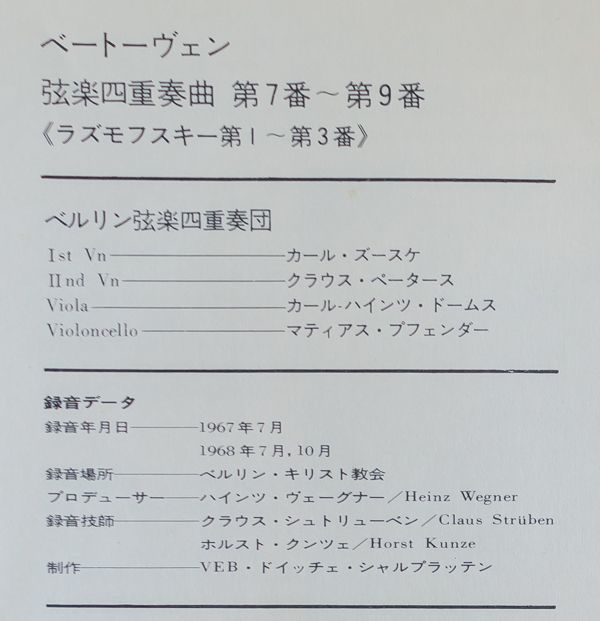 ベートーヴェン
弦楽四重奏曲 第7番～第9番
《ラズモフスキー第1～第3番》
ベルリン弦楽四重奏団
Ist Vn カール・ズースケ
IInd Vn クラウス・ペータース
Viola カール-ハインツ・ドームス
Violoncello マティアス・プフェンダー
録音データ
録音年月日 1967年7月
1968年7月,10月
録音場所 ベルリン・キリスト教会
プロデューサー ハインツ・ヴェーグナー／Heinz Wegner
録音技師 クラウス・シュトリューベン／Claus Strüben
ホルスト・クンツェ／Horst Kunze
制作 VEB・ドイッチェ・シャルプラッテン